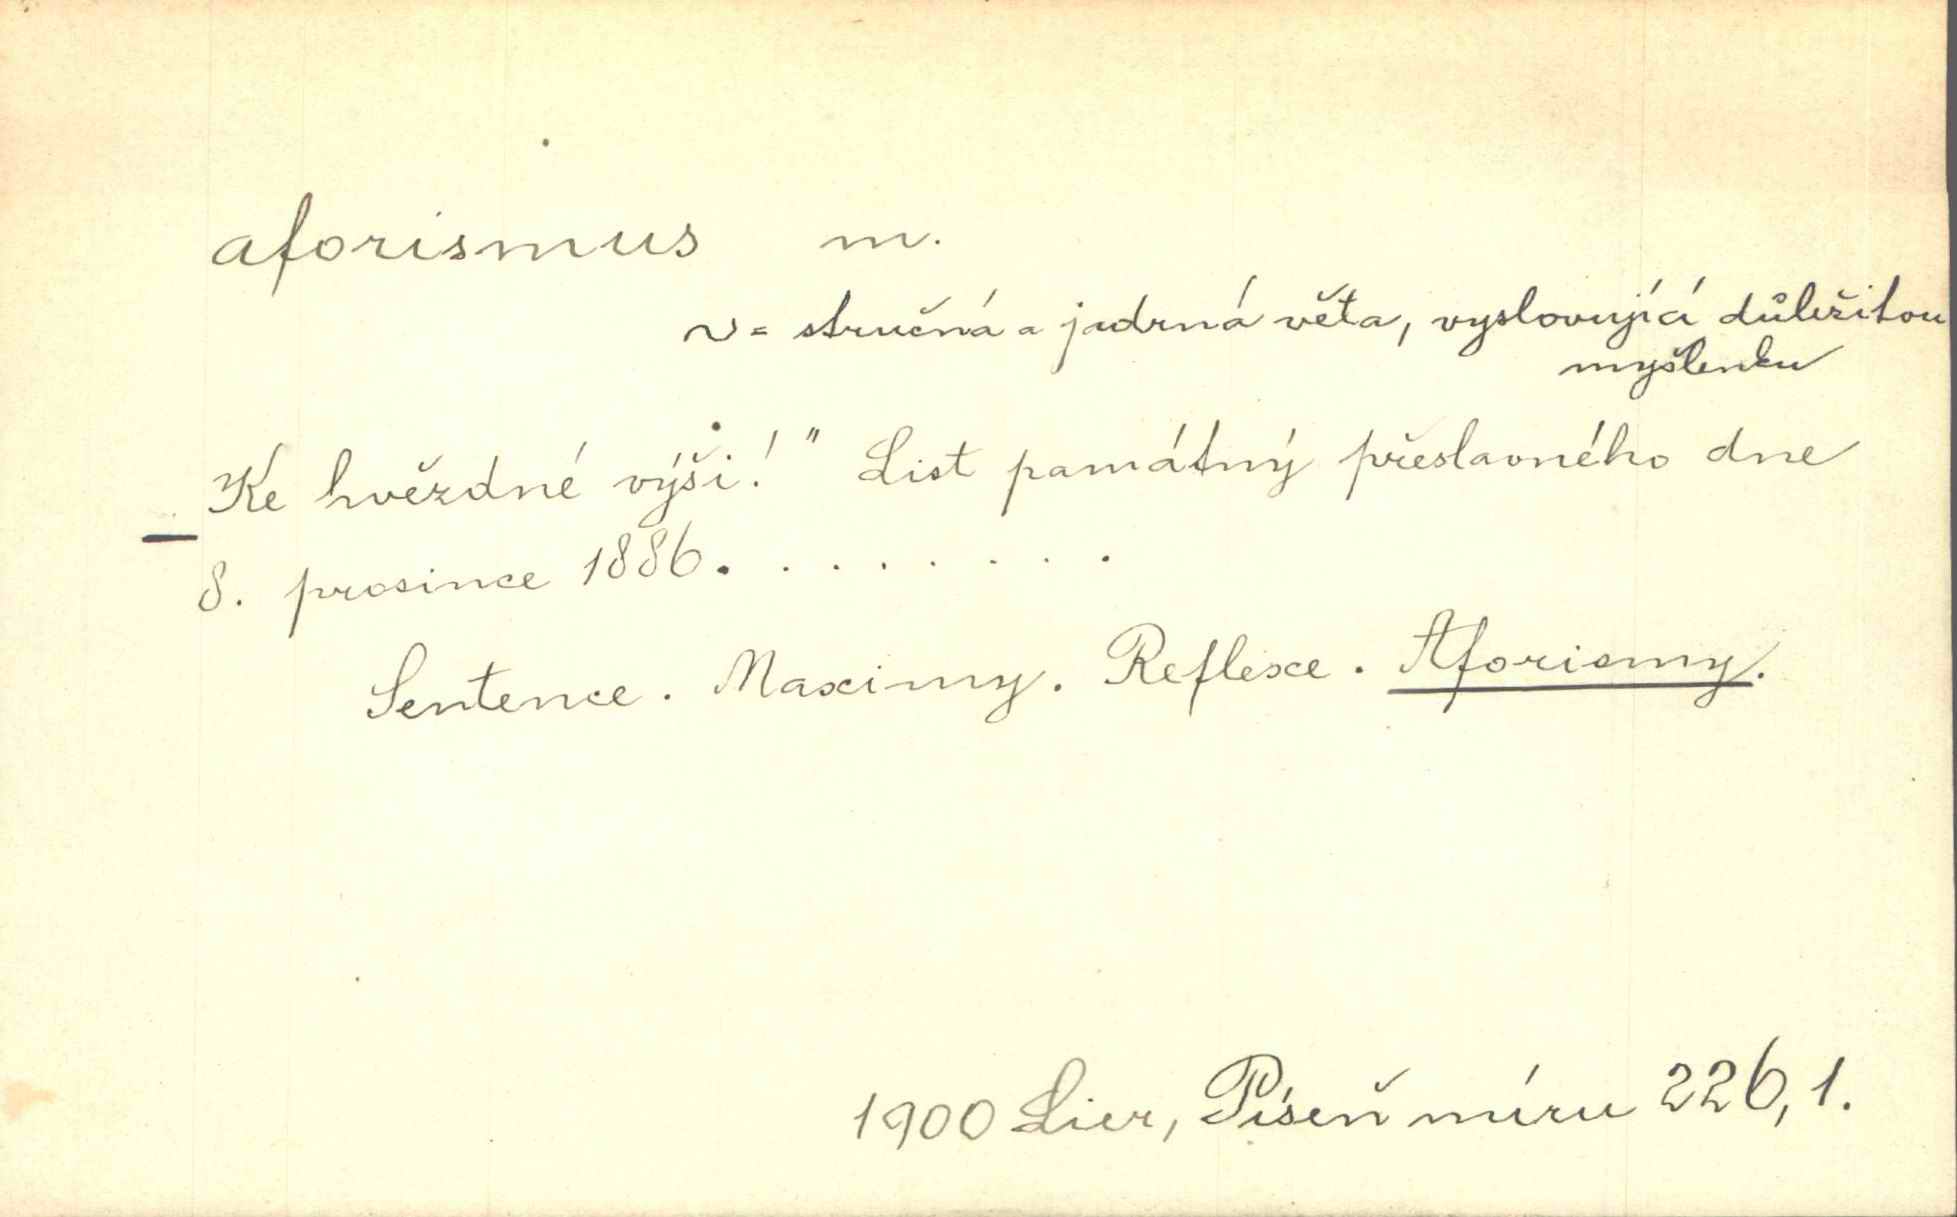 aforismus m.
v = stručná a jadrná věta, vyslovující důležitou
myšlenku
Ke hvězdné výši!" List památný přeslavného dne
8. prosince 1886. . . . . . . . .
Sentence. Maximy. Reflexe. Aforismy.
1900 Lier, Píseň míru 226, 1.